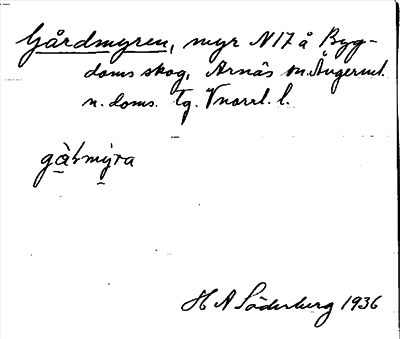 Gårdmyren, myr N17 å Byg-
doms skog, Arnäs sn. Ångerml.
n. doms. tg. Vnorrl. l.
gà̱ɫmỳ̱ra
H A Söderberg 1936